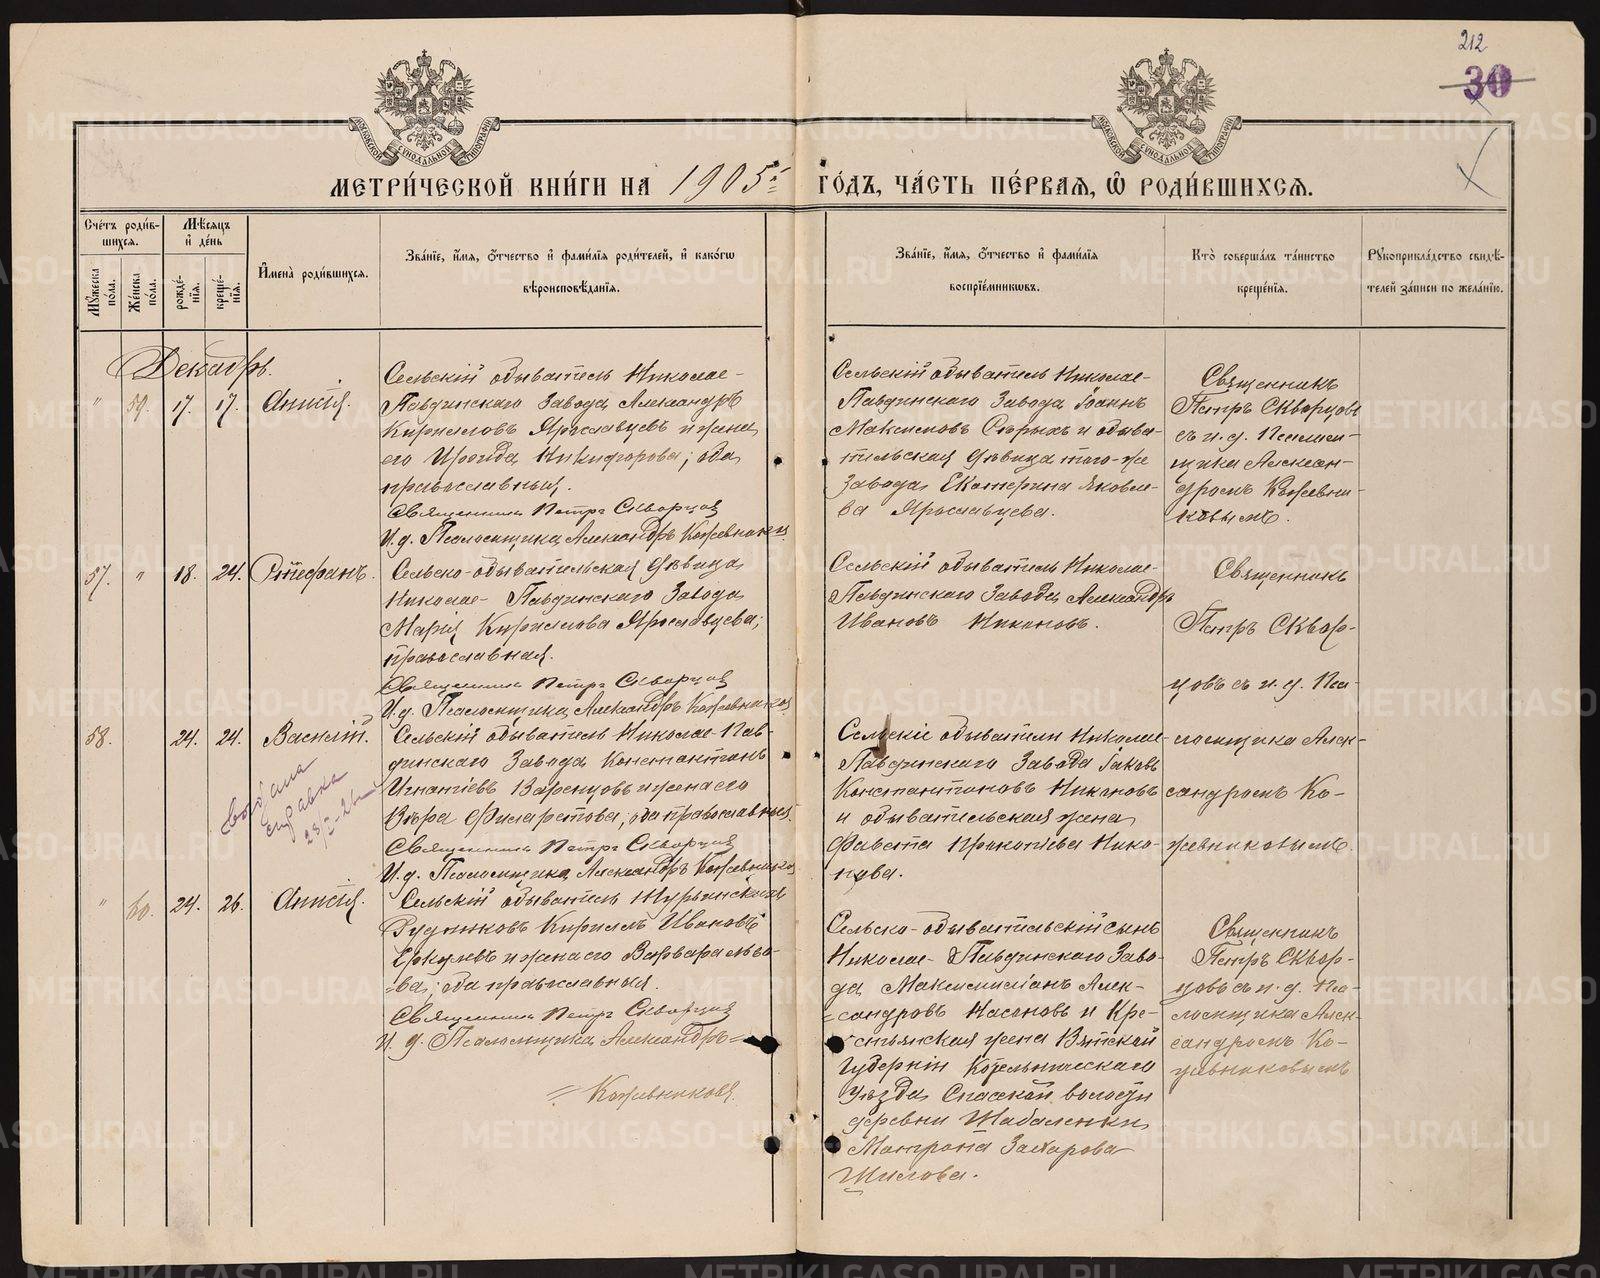 212
30
МЕТРИ́ЧЕСКОЙ КНИ́ГИ НА 1905й
ГО́ДЪ, ЧА́СТЬ ПЕ́РВАЯ, Ѡ РОДИ́ВШИХСЯ.
Сче́тъ роди́в-
шихся.
Мѣсяцъ
и҆ де́нь
Мꙋ́жеска
по́ла.
Же́нска
по́ла.
рожде́-
нїя.
креще́-
нїя.
И҆мена̀ роди́вшихся.
Зва́нїе, и҆́мя, ѻ҆́тчество и҆ фами́лїя роди́телей, и҆ како́гѡ
вѣроисповѣ́данїя.
Зва́нїе, и҆́мя, ѻ҆́тчество и҆ фами́лїя
воспрїе́мникѡвъ.
Кто̀ соверша́лъ та́инство
креще́нїя.
Рꙋкоприкла́дство свидѣ́-
телей за́писи по жела́нїю.
Декабрь.
" 59. 17. 17. Анисія.
Сельскій обыватель Николае-
Павдинскаго Завода Александръ
Кирилловъ Ярославцевъ и жена
его Ироида Никифорова; оба
православныя.
Священникъ Петръ Скворцов
И. д. Псаломщика Александръ Кожевников
Сельскій обыватель Николае-
Павдинскаго Завода Іоаннъ
Максимовъ Сѣрыхъ и обыва-
тельская дѣвица того-же
завода Екатерина Яковле-
ва Ярославцева.
Священникъ
Петръ Скворцовъ
съ и. д. Псалом-
щика Алексан-
дромъ Кожевни-
ковымъ.
57. " 18. 24. Стефанъ.
Сельско-обывательская дѣвица
Николае-Павдинскаго Завода
Марія Кириллова Ярославцева;
православная.
Священникъ Петръ Скворцов
И. д. Псаломщика Александръ Кожевников
Сельскій обыватель Николае-
Павдинскаго Завода Александръ
Ивановъ Никоновъ.
Священникъ
Петръ Сквор-
цовъ съ и. д. Пса-
58. 24. 24. Василій.
Сельскій обыватель Николае-Пав-
динскаго Завода Константинъ
Игнатіевъ Варенцовъ и жена его
Вѣра Филаретова; оба православныя.
Священникъ Петръ Скворцов
И. д. Псаломщика Александръ Кожевников
справка
Сельскіе обыватели Николае-
Павдинскаго Завода Іаковъ
Константиновъ Никоновъ
и обывательская жена
Фавста Прокопіева Нико-
нова.
ломщика Алек-
сандромъ Ко-
жевниковымъ.
" 60. 24. 26. Анисія.
Сельскій обыватель Турьинскихъ
Рудниковъ Кириллъ Ивановъ
и жена его Варвара Льво-
ва; оба православныя.
Священникъ Петръ Скворцов
И. д. Псаломщика Александръ =
= Кожевников.
Сельско-обывательскій сынъ
Николае-Павдинскаго Заво-
да Максимиліанъ Алек-
сандровъ Насоновъ и Кре-
стьянская жена Вятской
Губерніи Котельническаго
Уѣзда Спасской волости
деревни Шабаленки
Матрона Захарова
Шилова.
Священникъ
Петръ Сквор-
цовъ съ и. д. Пса-
ломщика Алек-
сандромъ Ко-
жевниковымъ
METRIKI.GASO-URAL.RU